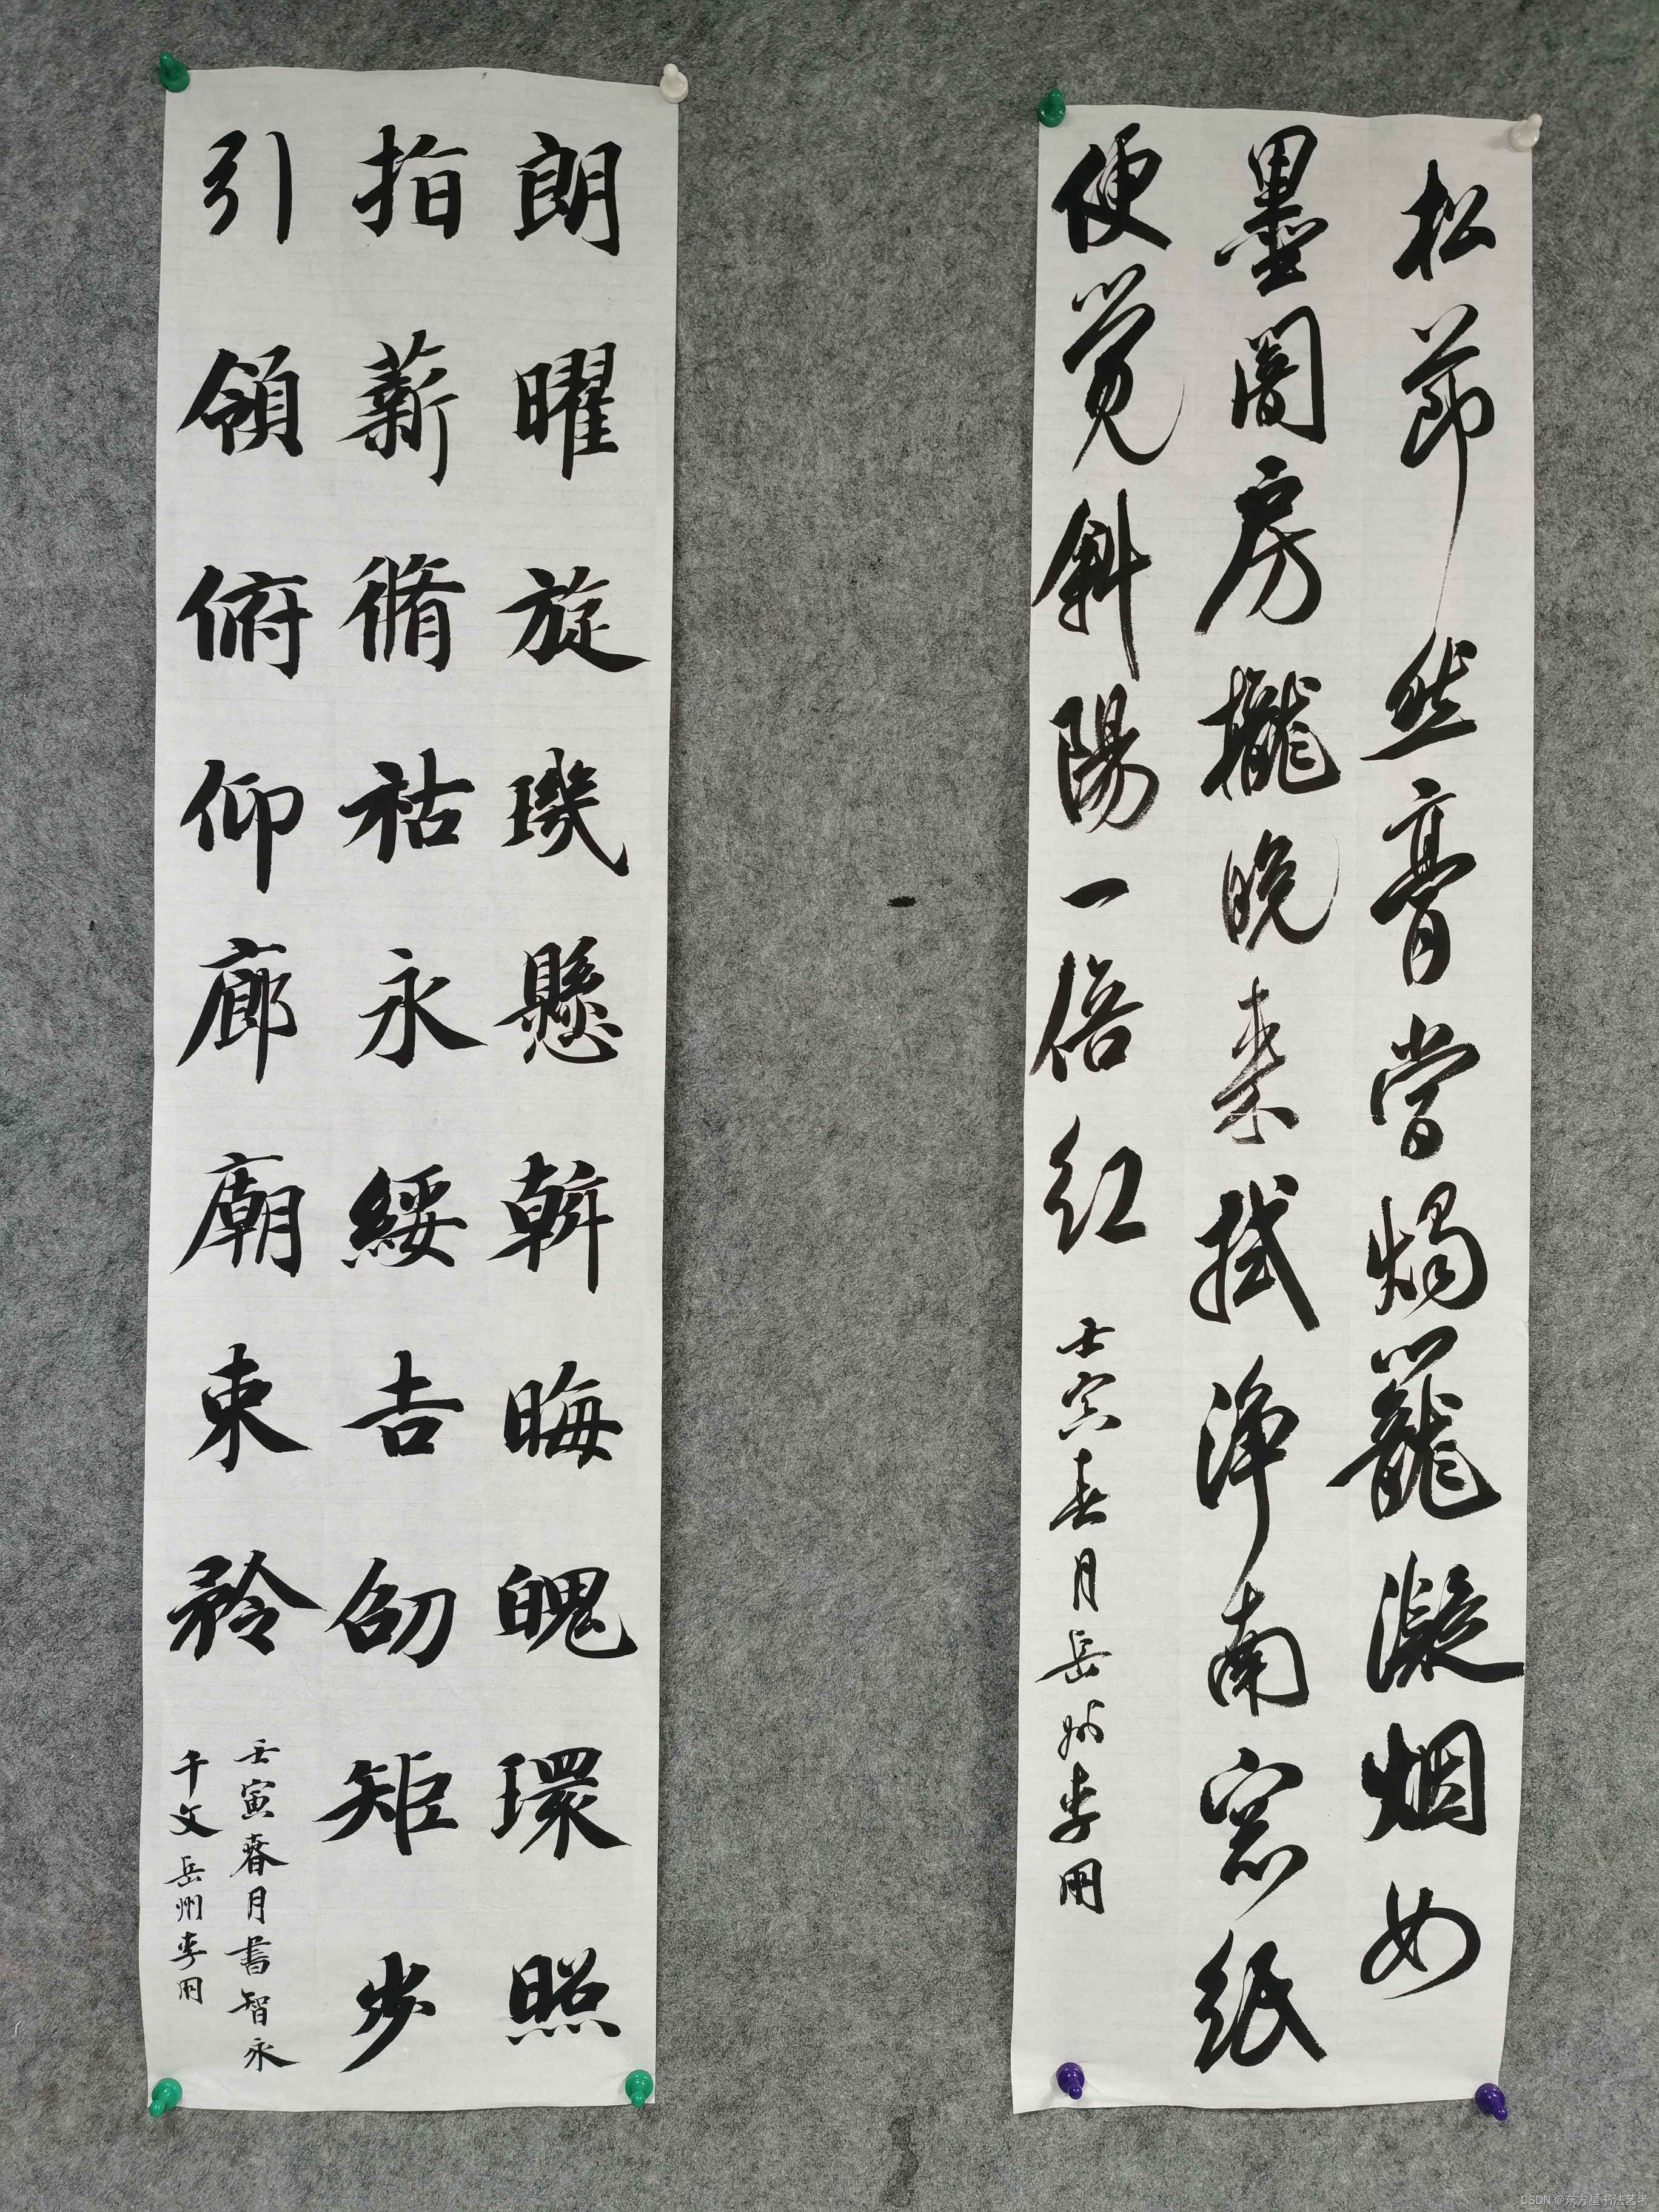 松節然膏當燭籠凝烟如
墨闇房櫳晚來拭淨南窓紙
便覺斜陽一倍紅
壬寅春月岳州李用
朗曜旋璣懸斡晦魄環照
指薪脩祜永綏吉劭矩步
引領俯仰廊廟束矜
壬寅春月書智永
千文岳州李用
CSDN @东方星书法艺考